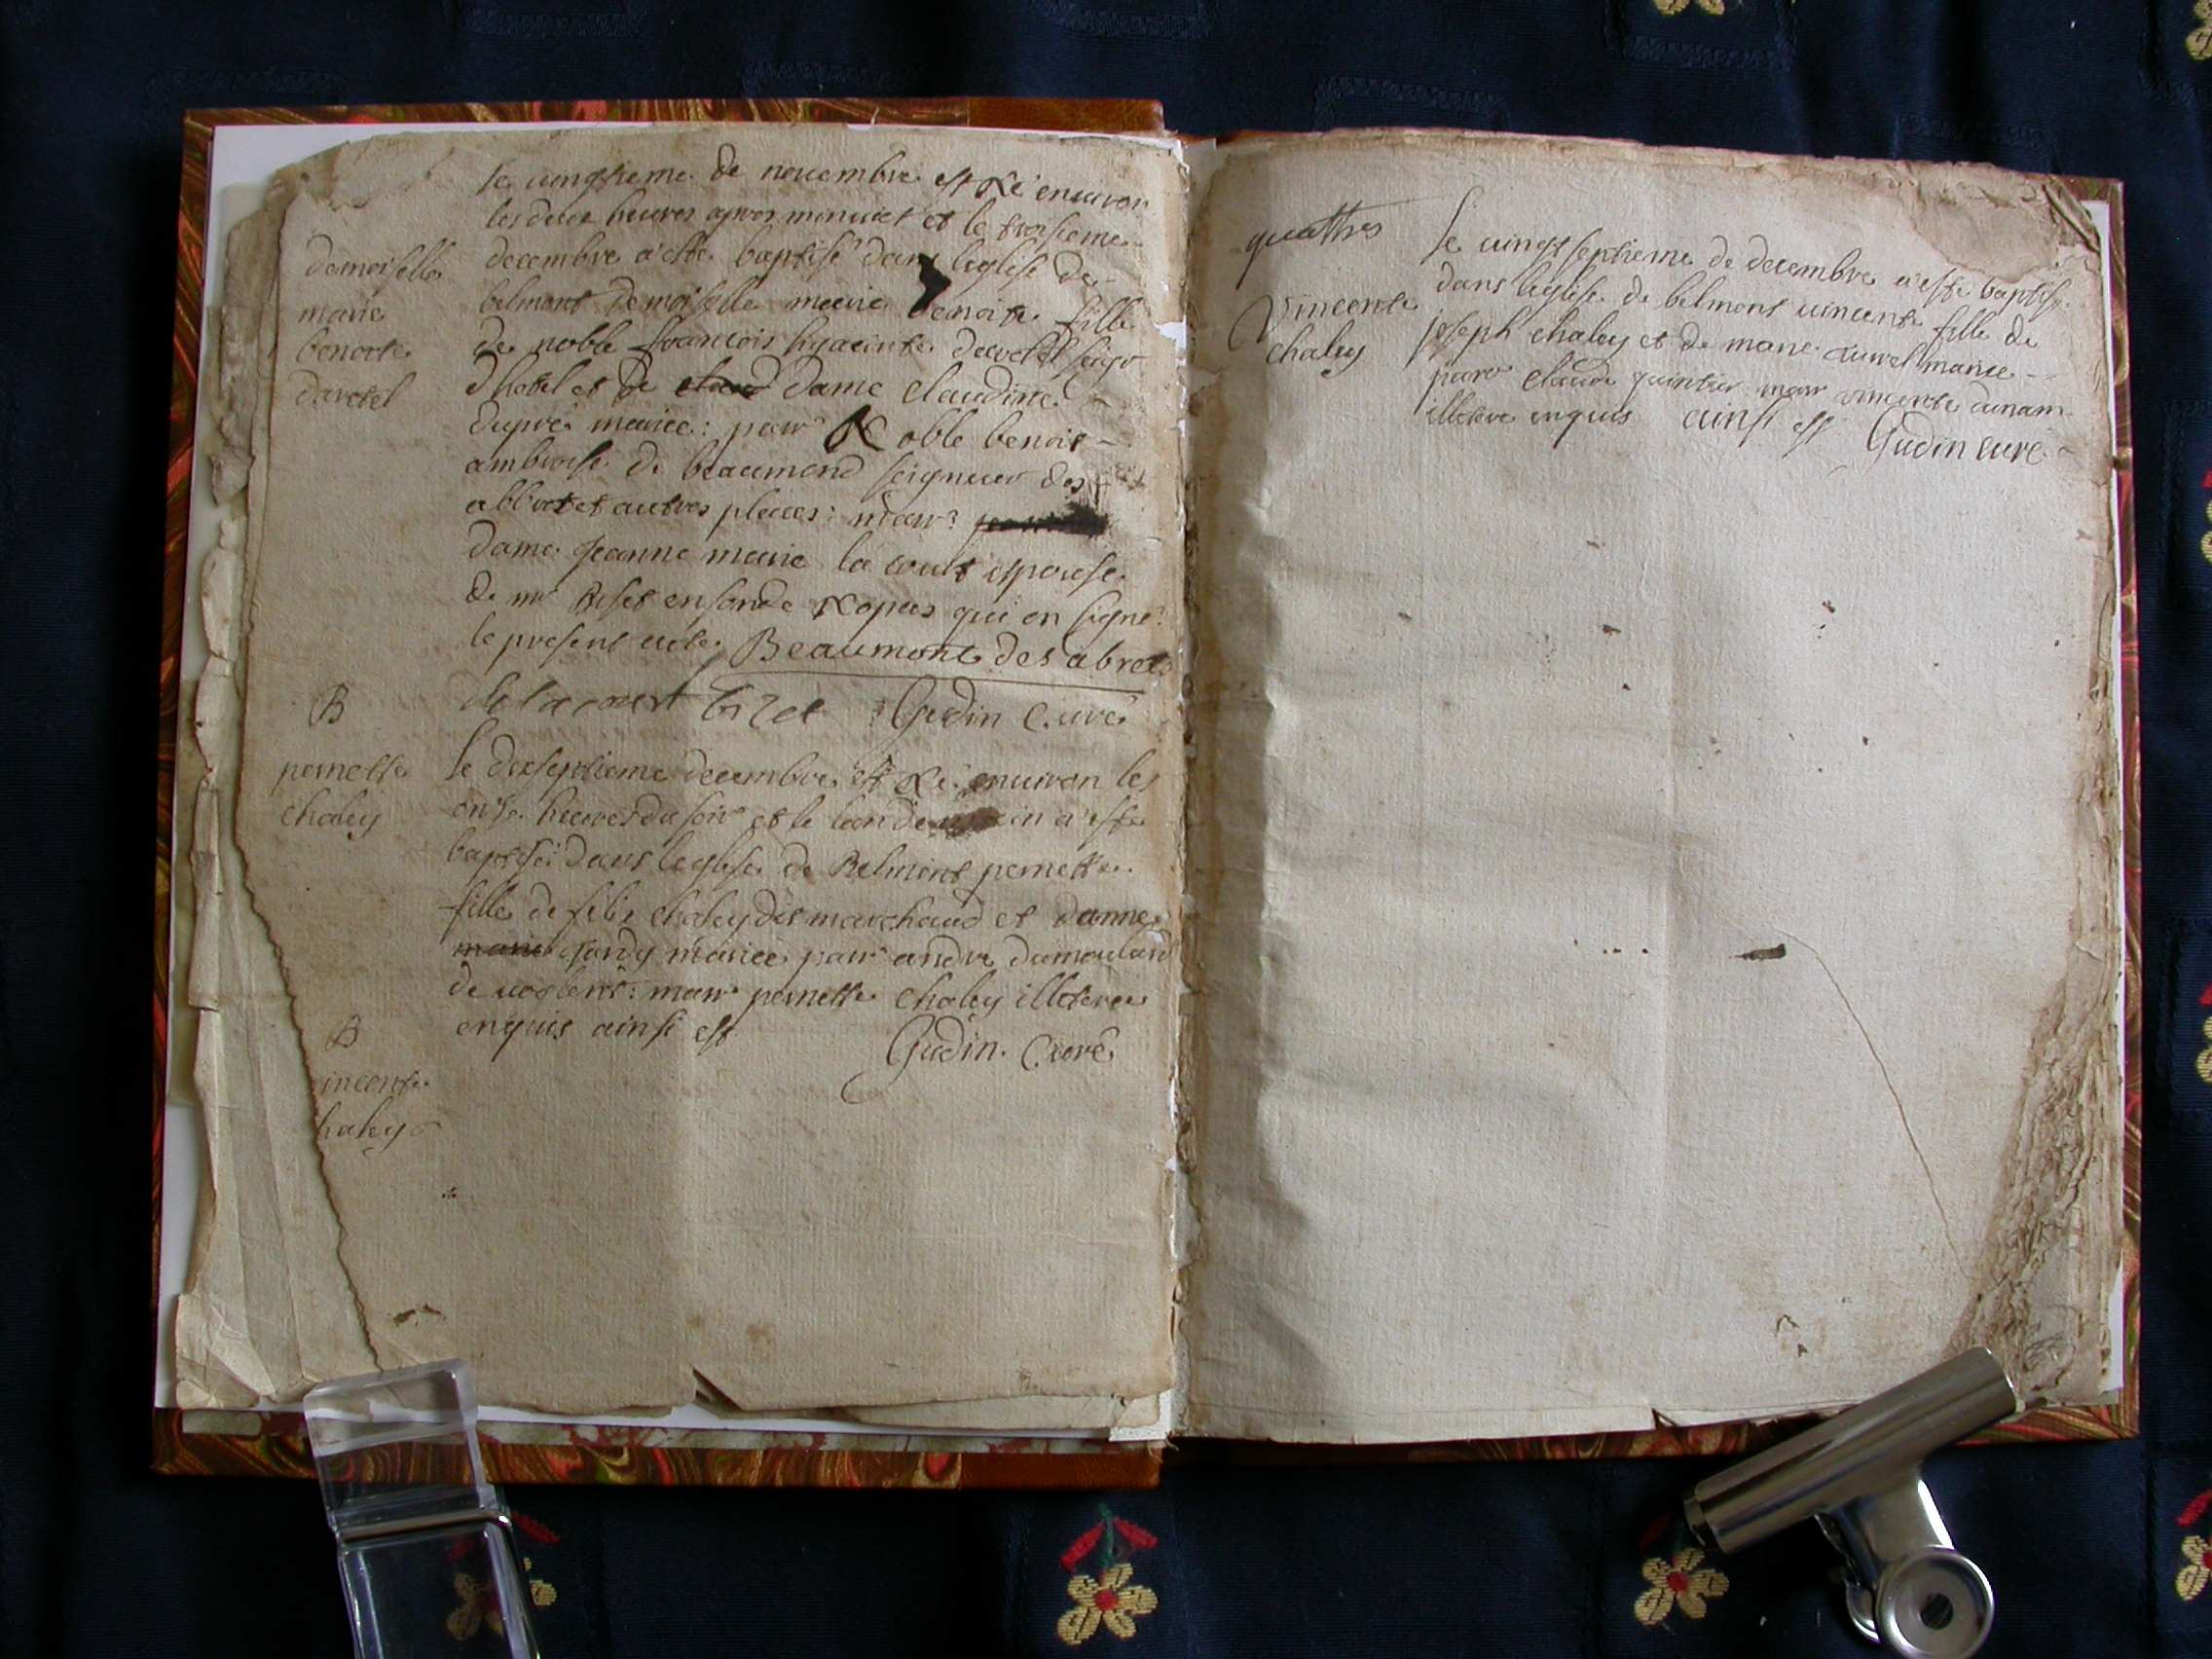 le cinqhieme de novembre est né environ
les deux heures apres minuict et le troisieme
decembre a este baptisé dans leglise de
belmont demoiselle marie benoite fille
de noble francois hyacinte davetel seigr
dhostel et de claud dame claudine
dupré mariée: parr Noble benoit
ambroise de beaumond seigneur des
abbrets et autres places: marr:
dame jeanne marie la court espouse
de mr Biset en son de Nopces qui on signé
le present acte. Beaumont des abrets
delacourt bizet Gudin Curé
demoiselle
marie
benoite
davetel
B
pernette
chaley
le dixseptieme decembre est né environ les
onse heures du soir et le landemain a este
baptisée dans leglise de Belmont pernette
fille de felix chaley dit marchand et danne
marie tardy mariée parr andré dumoulard
de marr pernette chaley illeteres
enquis ainsi est Gudin. Curé
B
incente
haley
quattre
Vincente
chaley
le vingt septieme de decembre a este baptisé
dans leglise de belmont vincente fille de
joseph chaley et de marie mariee
parr claude marr vincente
illetere enquis ainsi est Gudin curé